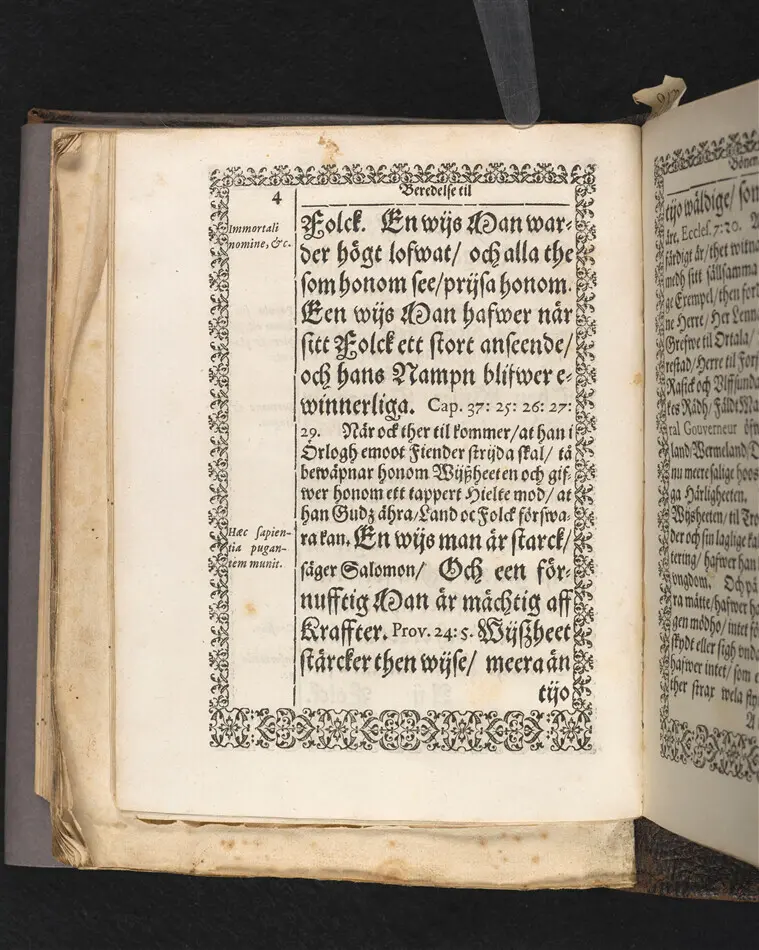 4
Beredelse til
Immortali
nomine, &c.
Folck. En wijs Man war-
der högt lofwat/ och alla the
som honom see/prijsa honom.
Een wijs Man hafwer när
sitt Folck ett stort anseende/
och hans Nampn blifwer e-
winnerliga. Cap. 37: 25: 26: 27:
29. När ock ther til kommer/at han i
Örlogh emoot Fiender strijda skal/ tå
bewäpnar honom Wijßheeten och gif-
wer honom ett tappert Hielte mod/ at
han Gudz ähra/Land oc Folck förswa-
ra kan. En wijs man är starck/
säger Salomon/ Och een för-
nufftig Man är mächtig aff
Kraffter. Prov. 24: 5. Wijßheet
stärcker then wijse/ meera än
tijo
Hæc sapien-
tia pugan-
tem munit.
Bönen
tijo wäldige/ som
äre. Eccles. 7: 20.
färdigt är/thet witna
medh sitt sällsamma
ge Exempel/then ford
ne Herre/ Her Lenna
Grefwe til Ortala/
restad/Herre til Fors
Rasick och Ulffsunda
kes Rådh/ Fäldt Ma
ral Gouverneur öfw
land/Wermeland/D
nu meere salige hoos
ga Härligheeten.
Wijsheeten/ til Tro
der och sin laglige kal
tering/ hafwer han
ungdom. Och på
ra måtte/hafwer ha
gen mödho/ intet fö
skydt eller sigh unda
hafwer intet/ som e
ther strax wela sty